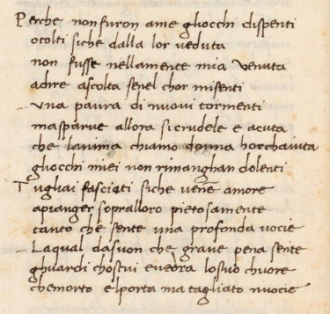 Perche non furon ame ghocchi dispenti
ocolti siche dalla lor veduta
non fusse nellamente mia venuta
adire ascolta senel chor misenti
una paura di nuovi tormenti
masparue allora si crudele e acuta
che lanima chiamo donna horchaiuta
ghocchi miei non rimanghan dolenti
Tu gli ai fasciati siche venne amore
apianger sopralloro pietosamente
tanto che sente una profonda vocie
Laqual dasuon che graue pena sente
ghuardi chostui e vedra losuo chuore
chemorto elporta ma tagliato in crocie